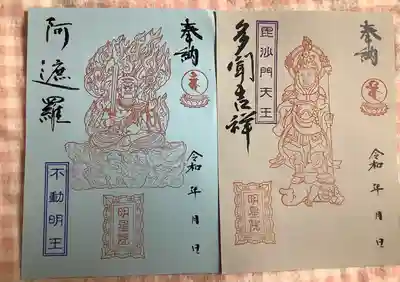 奉納
令和 年 月 日
阿遮羅
不動明王
明星院
奉納
令和 年 月 日
毘沙門天王
多聞吉祥
明星院